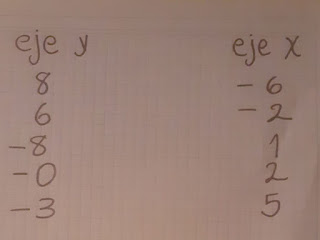 eje y eje x
8 -6
6 -2
-8 1
-0 2
-3 5